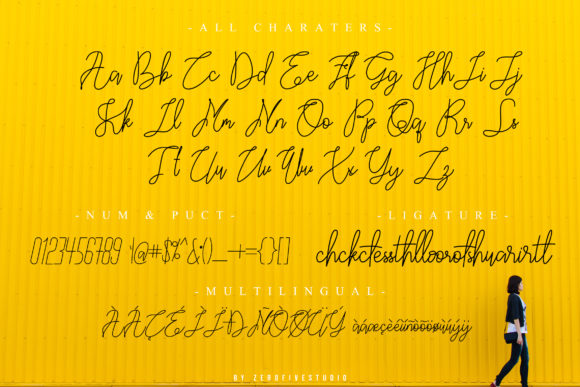 -ALL CHARATERS-
Aa Bb Cc Dd Ee Ff Gg Hh Ii Jj
Kk Ll Mm Nn Oo Pp Qq Rr Ss
Tt Uu Vv Ww Xx Yy Zz
-NUM & PUCT-
0123456789 !@#$%^&*()_-+={}[]
-LIGATURE-
chckctessthllooorotshuarirtt
-MULTILINGUAL-
BY ZEROFIVESTUDIO